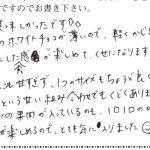 ですのでお書き下さい。
美味しかったです
のホワイトチョコが薄いので、軽くかじる
した感が楽しめて、くせになります
も甘すぎず、1つのサイズもちょうど良く
という甘い組み合わせでもくどくありま
の果肉が入っているのも、1口1口の
が楽しめるので、とても気に入りました